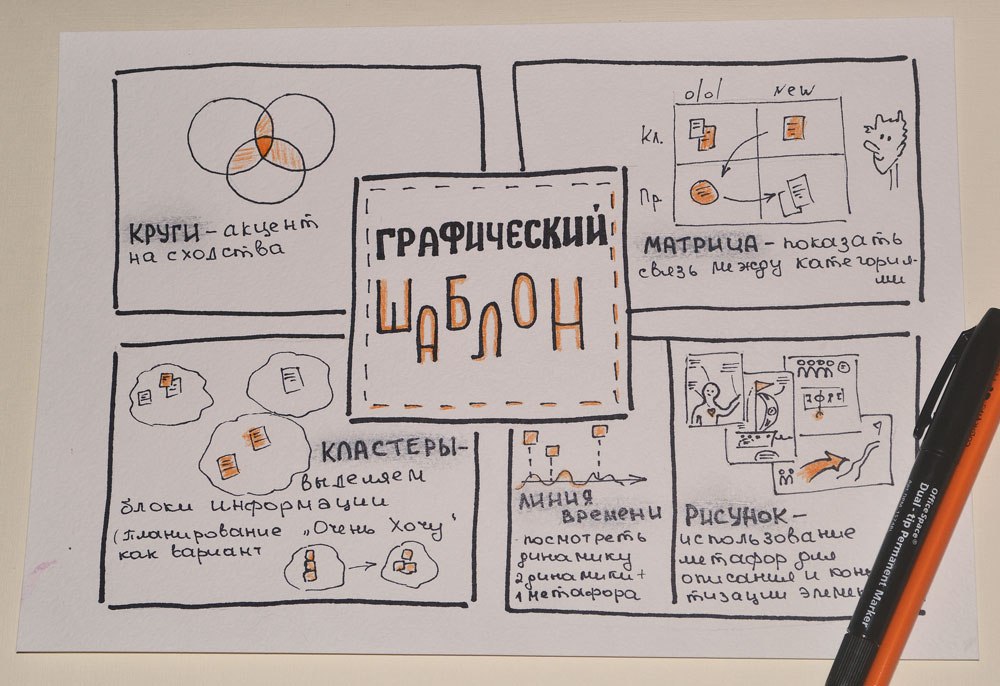 ГРАФИЧЕСКИЙ
ШАБЛОН
КРУГИ – акцент
на сходства
old
New
Кл.
Пр
МАТРИЦА – показать
связь между категория-
ми
КЛАСТЕРЫ –
выделяем
блоки информации
(Планирование „Очень Хочу"
как вариант
ЛИНИЯ
ВРЕМЕНИ
- посмотреть
динамику
2 динамики +
1 метафора
РИСУНОК –
использование
метафор для
описания и кон
тизации элеме
OfficeSpace®
Dual-tip Permanent Marker